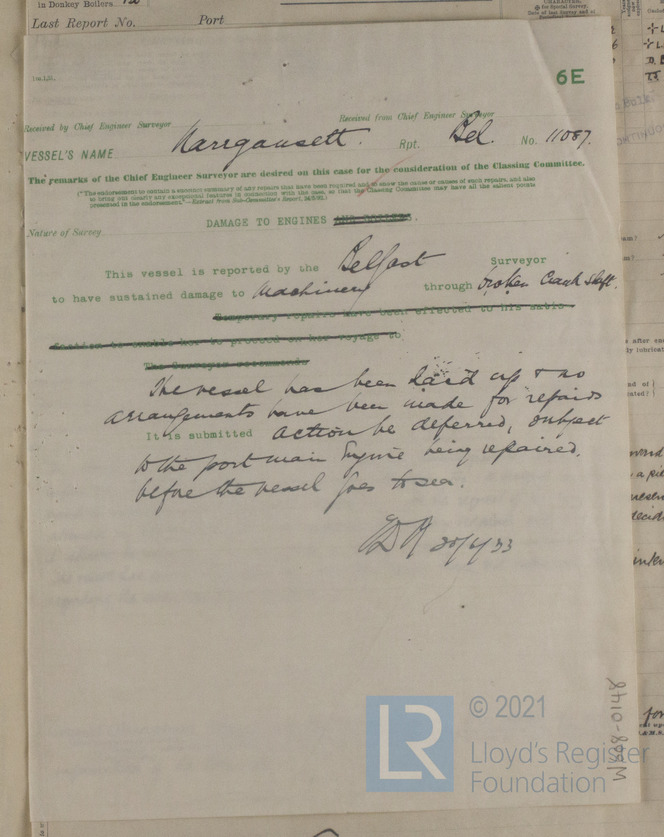 in Donkey Boilers
Last Report No. Port
CHARACTER.
for Special Survey.
6E
Received by Chief Engineer Surveyor
Received from Chief Engineer Surveyor
VESSEL'S NAME Narragansett. Rpt. Bel. No. 11087.
The remarks of the Chief Engineer Surveyor are desired on this case for the consideration of the Classing Committee.
("The endorsement to contain a succinct summary of any repairs that have been required and to show the cause or causes of such repairs, and also
to bring out clearly any exceptional features in connection with the case, so that the Classing Committee may have all the salient points
presented in the endorsement."—Extract from Sub-Committee's Report,
Nature of Survey DAMAGE TO ENGINES AND BOILERS.
This vessel is reported by the Belfast Surveyor
to have sustained damage to Machinery through broken Crank Shaft.
Temporary repairs have been effected to his satis-
faction to enable her to proceed on her voyage to
The Surveyor recommends
The vessel has been laid up & no
arrangements have been made for repairs
It is submitted action be deferred, subject
to the port main Engine being repaired.
before the vessel goes to sea.
© 2021
LR
Lloyd's Register
Foundation
W898-0148